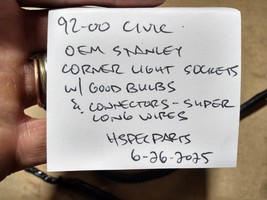 92-00 CIVIC.
OEM STANLEY
CORNER LIGHT SOCKETS
W/ GOOD BULBS
& CONNECTORS - SUPER
LONG WIRES
HSPECPARTS
6-26-2025